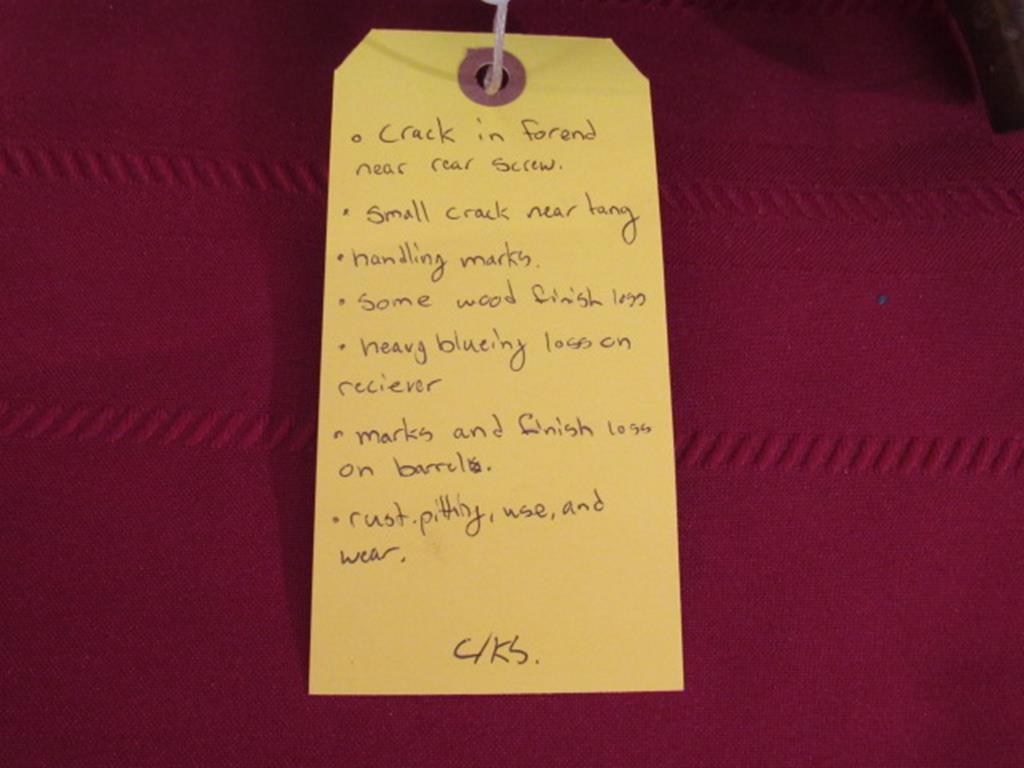 • Crack in forend
near rear screw.
• small crack near tang
• handling marks.
• some wood finish loss
• heavy blueing loss on
reciever
• marks and finish loss
on barrel.
• rust.pitting, use, and
wear.
C/KS.